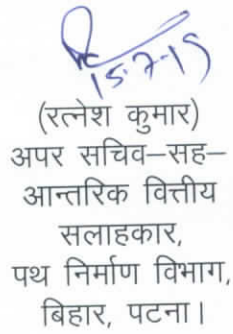 15.7.15
(रत्नेश कुमार)
अपर सचिव–सह–
आन्तरिक वित्तीय
सलाहकार,
पथ निर्माण विभाग,
बिहार, पटना।